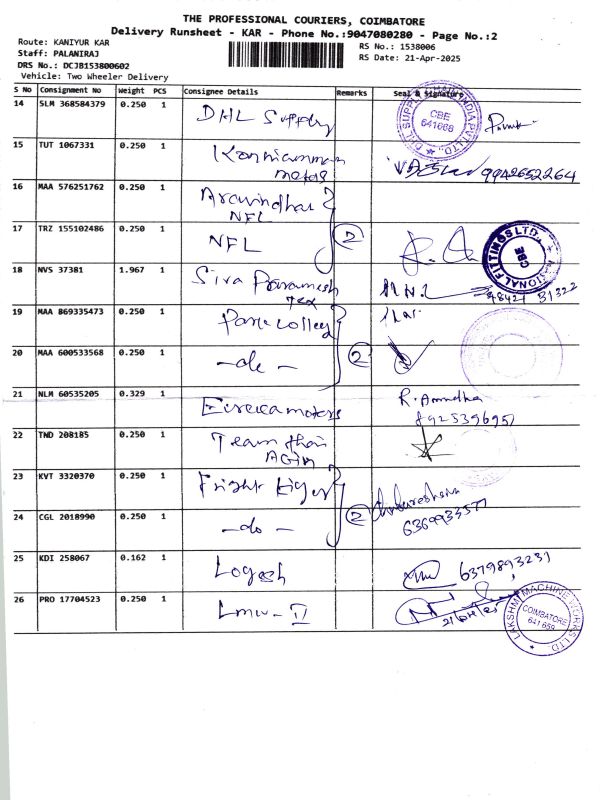 THE PROFESSIONAL COURIERS, COIMBATORE
Delivery Runsheet - KAR - Phone No.:9047080280 - Page No.:2
Route: KANIYUR KAR
Staff: PALANIRAJ
DRS No.: DCJB153800602
Vehicle: Two Wheeler Delivery
RS No.: 1538006
RS Date: 21-Apr-2025
S No Consignment No Weight PCS Consignee Details Remarks Seal & Signature
14 SLM 368584379 0.250 1 DHL Supply
CBE
641668
15 TUT 1067331 0.250 1 Kanniamman
metals
9942652264
16 MAA 576251762 0.250 1 Aravindhar
NFL
17 TRZ 155102486 0.250 1 NFL 2
NATIONAL FITTINGS LTD.,
CBE
18 NVS 37381 1.967 1 Siva Paramesh
Tex
19 MAA 869335473 0.250 1
20 MAA 600533568 0.250 1 - do - 2
21 NLM 60535205 0.329 1 Eureica motors R. Amudha
8925396951
22 TND 208185 0.250 1 Team thai
23 KVT 3320370 0.250 1
24 CGL 2018990 0.250 1 - do - 2
6369933577
25 KDI 258067 0.162 1 Logesh 6379893231
26 PRO 17704523 0.250 1 Lmw - II
LAKSHMI MACHINE WORKS LTD.
COIMBATORE
641 659